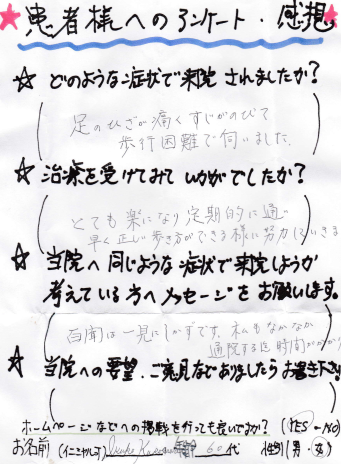 患者様へのアンケート・感想
☆ どのような症状で来院されましたか?
足のひざが痛くすじがのびて
歩行困難で伺いました.
☆ 治療を受けてみていかがでしたか?
とても楽になり定期的に通い
早く正しい歩き方ができる様に努力していきます
☆ 当院へ同じような症状で来院しようか
考えている方へメッセージをお願いします。
百聞は一見にしかずです。私もなかなか
通院するまで時間がかかり
☆ 当院への要望、ご意見などありましたらお書き下さい
ホームページなどへの掲載を行っても良いですか? (YES - NO)
お名前 (イニシャル可) 60代 性別(男・女)